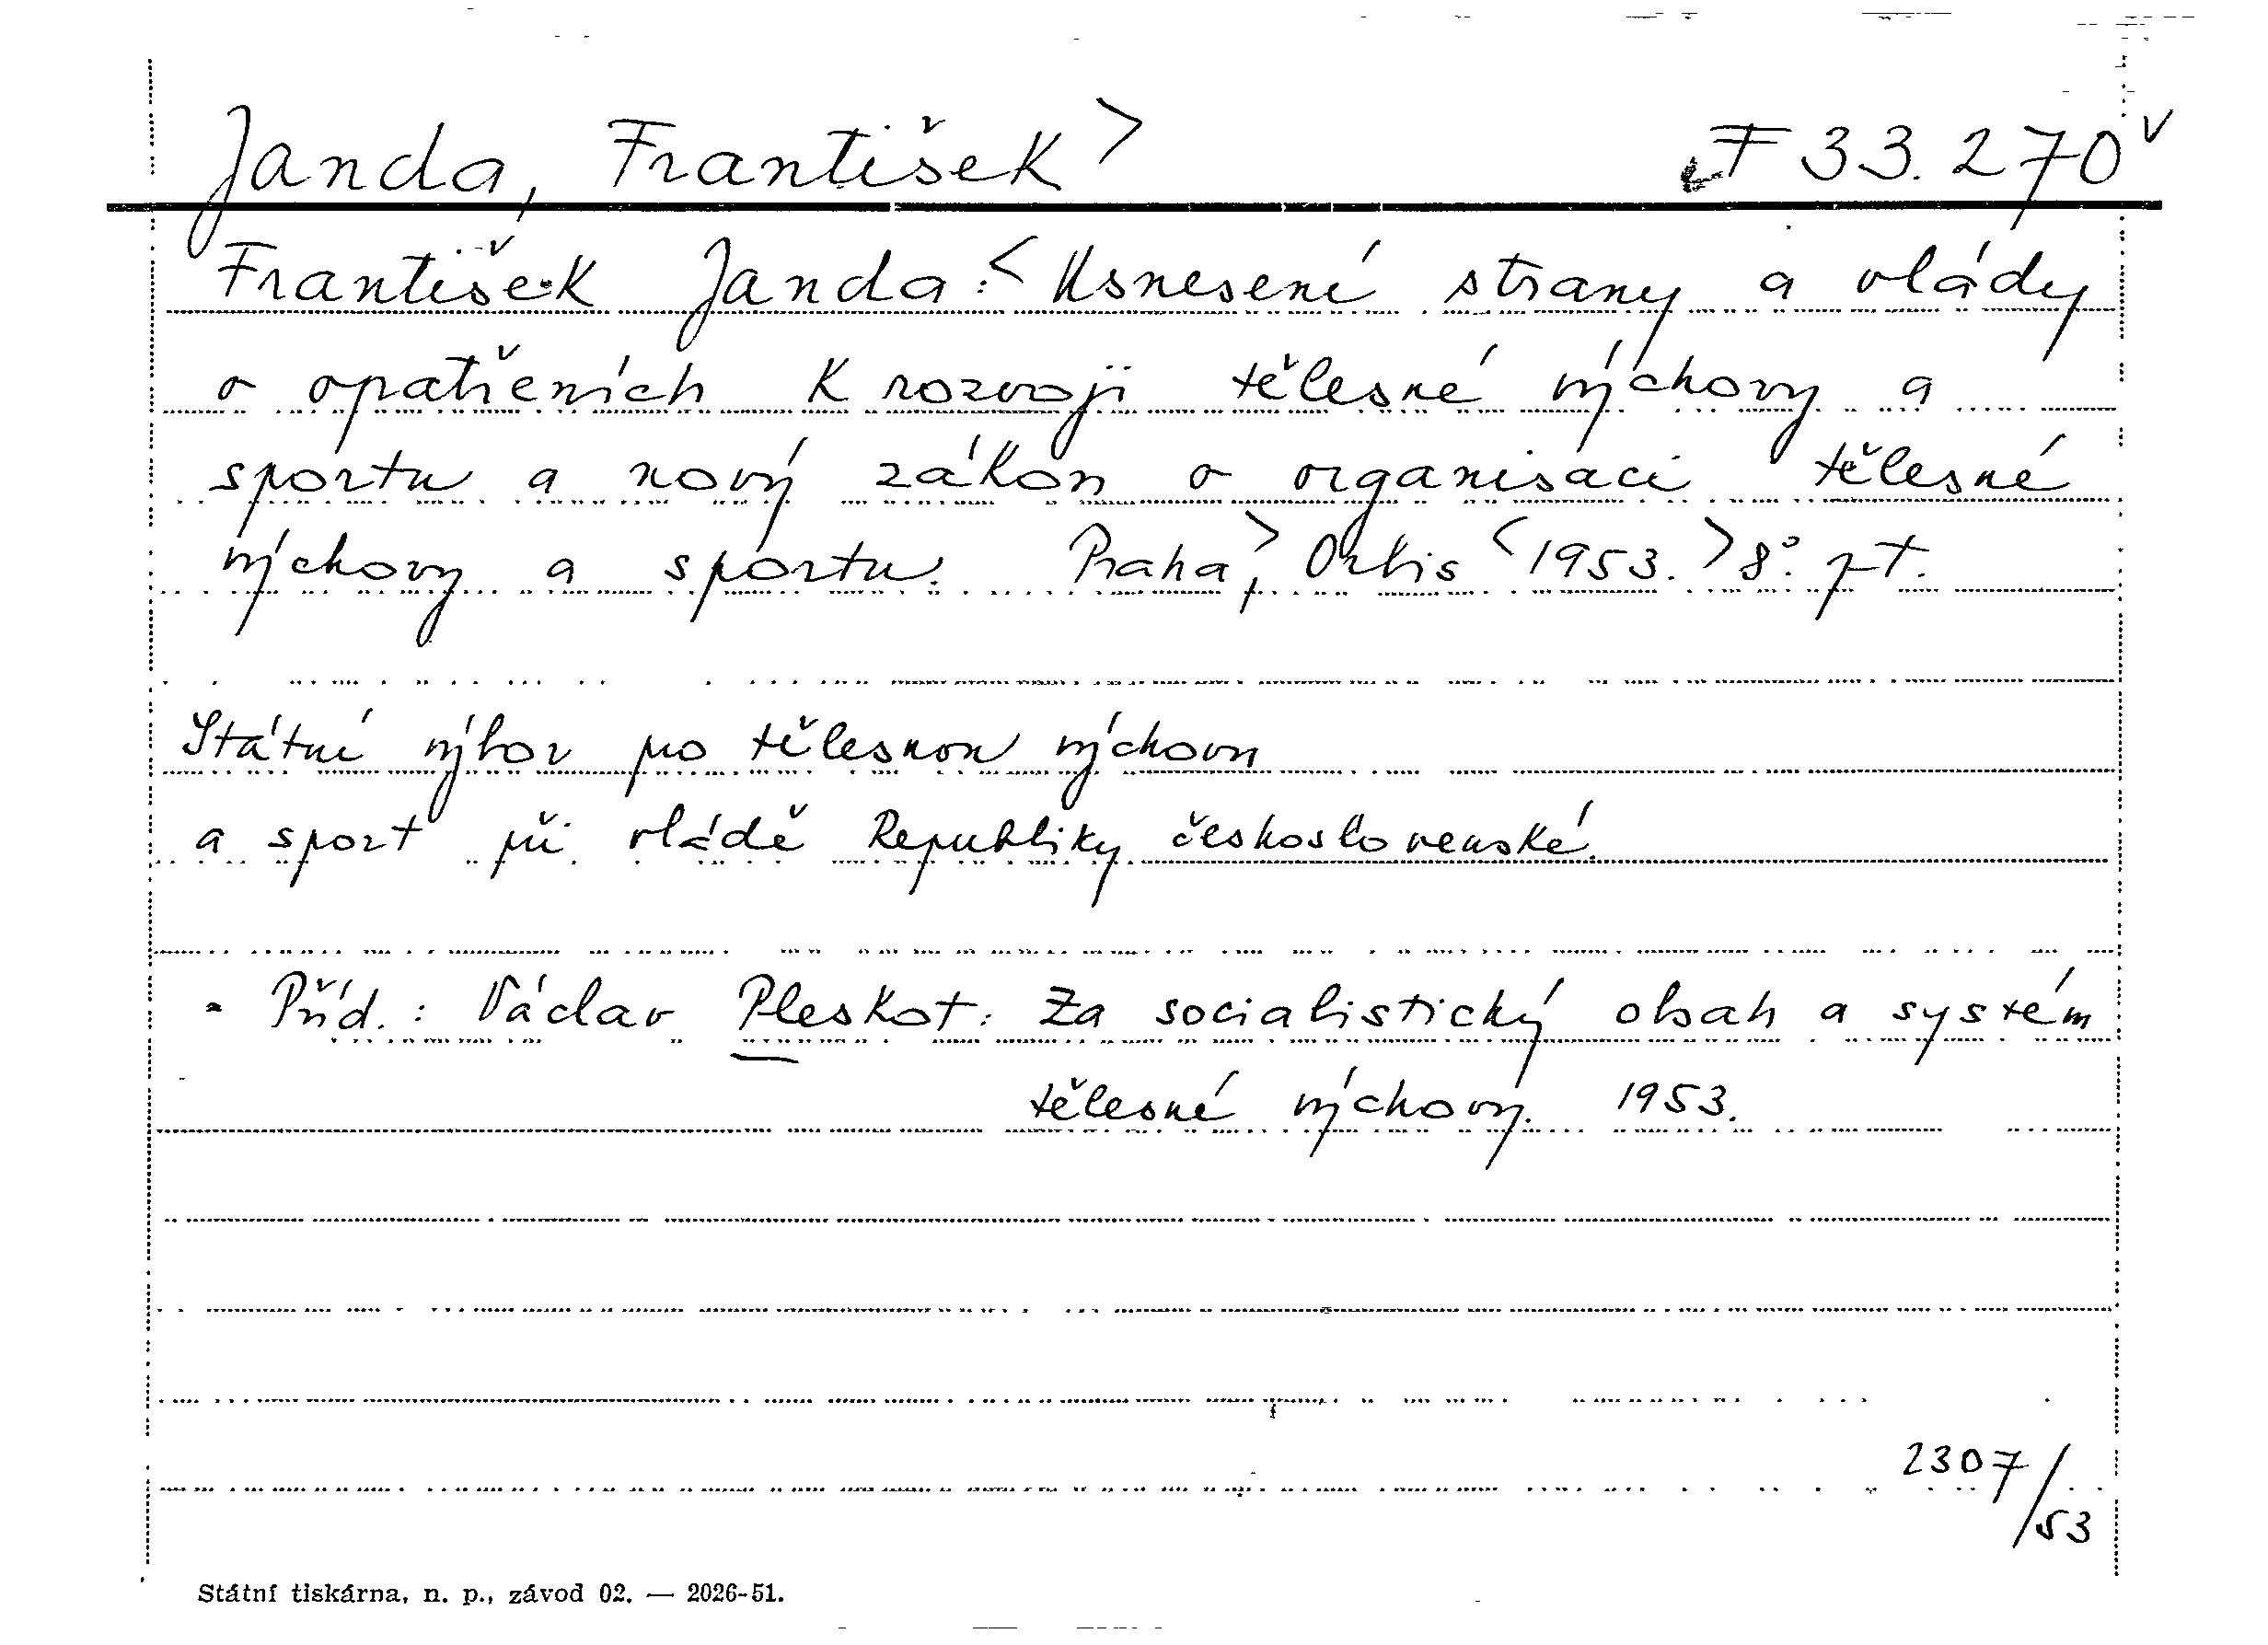 Janda, František> F 33.270
František Janda:<Usnesení strany a vlády
o opatřeních k rozvoji tělesné výchovy a
sportu a nový zákon o organisaci tělesné
výchovy a sportu. Praha,> Orbis <1953.> 8°. 
Státní výbor pro tělesnou výchovu
a sport při vládě Republiky československé.
- Příd.: Václav Pleskot: Za socialistický obsah a systém
tělesné výchovy. 1953.
2307/53
Státní tiskárna, n. p., závod 02. — 2026-51.